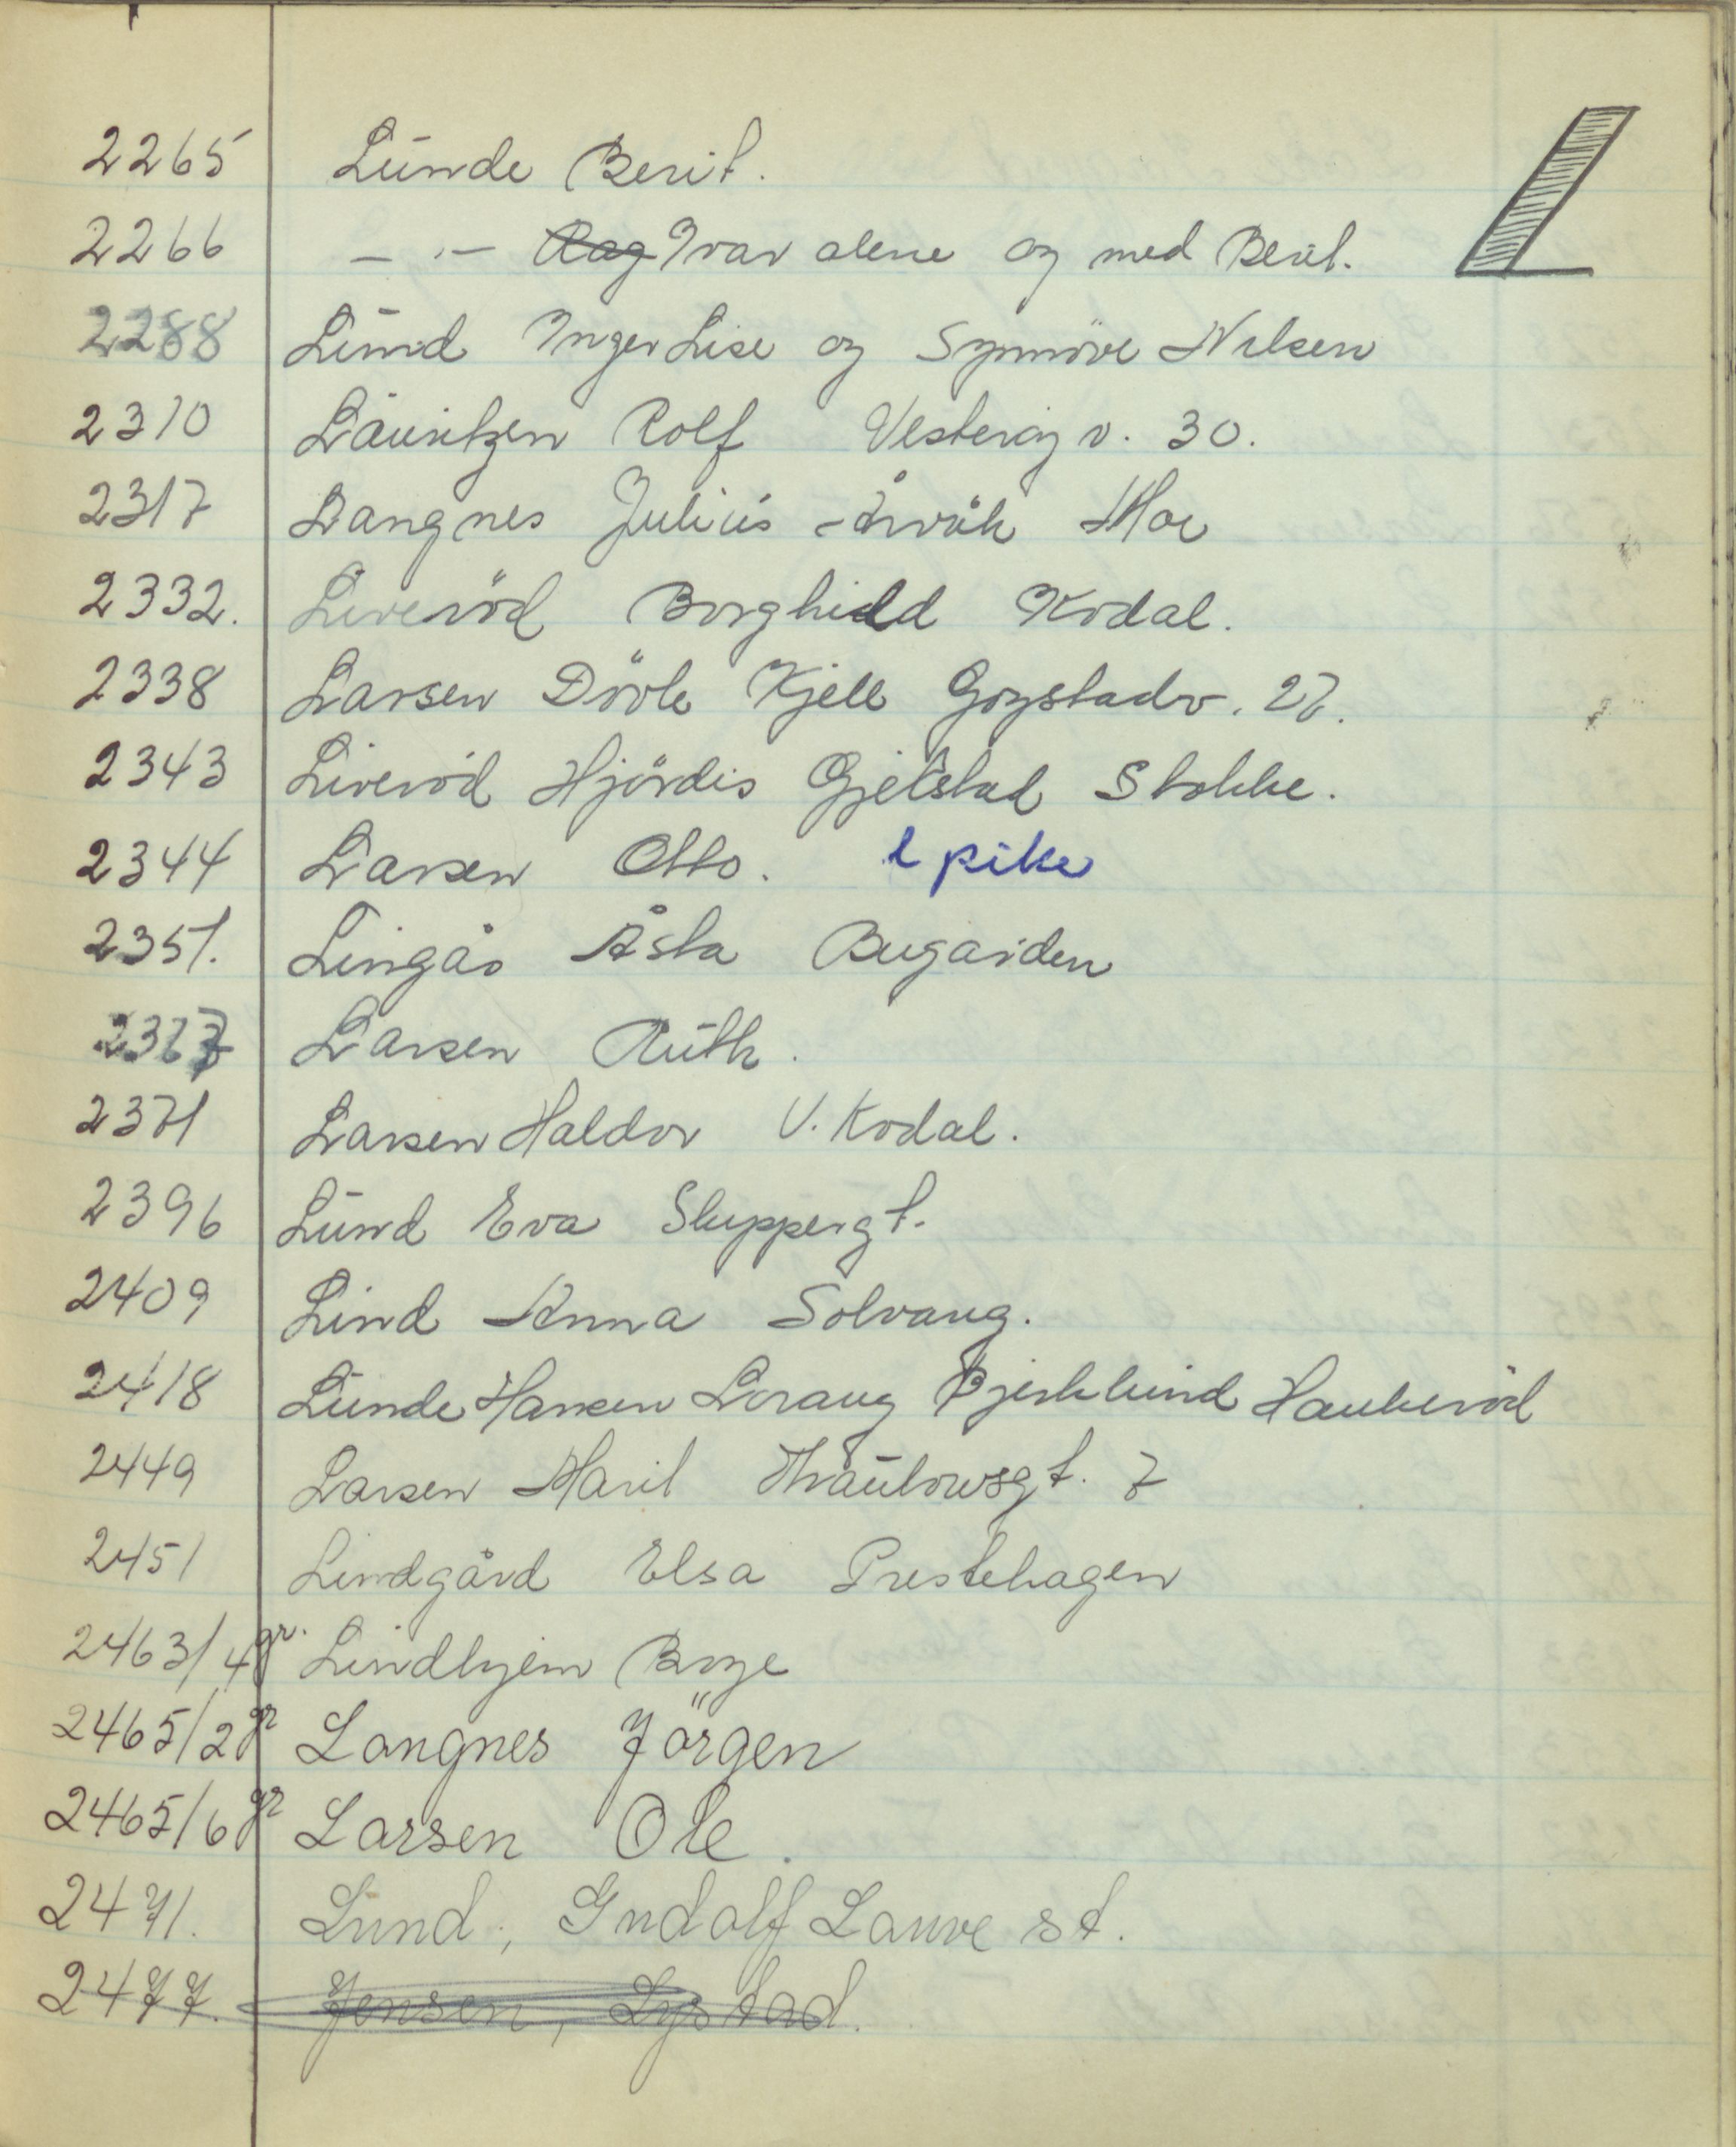 L
2265 Lunde Berit.
2266 — " — Rag Ivar alene og med Berit.
2288 Lund Inger Lise og Synnöve Nilsen
2310 Lauritzen Rolf Vesteröy v. 30.
2317 Langnes Julius Moe
2332. Liveröd Borghild Kodal.
2338 Larsen Dövle Kjell Gogstadv. 27.
2343 Liveröd Hjördis Gjelstad Stokke.
2344 Larsen Otto. 1 pike
2351. Lingås Åsta Bugården
2367 Larsen Ruth.
2371 Larsen Haldor V. Kodal.
2396 Lund Eva Skippergt.
2409 Lind Anna Solvang.
2418 Lunde Hansen Solaug Bjerklund Haukeröd
2449 Larsen Marit Thaulowsgt. 7
2451 Lindgård Elsa Prestehagen
2463/4 gr. Lindhjem Boye
2465/2 gr Langnes Jörgen
2465/6 gr Larsen Ole.
2471. Lund, Gudolf Lauve st.
2477. Jensen, Lystad.